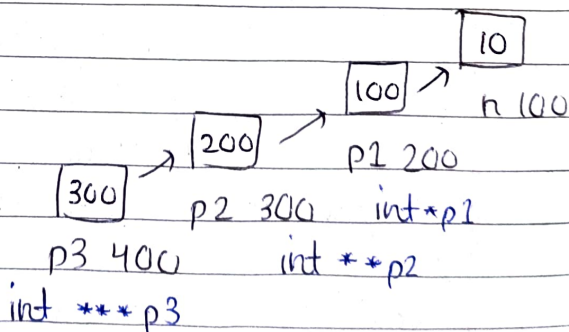 10
100
n 100
200
p1 200
300
p2 300
int*p1
p3 400
int **p2
int ***p3